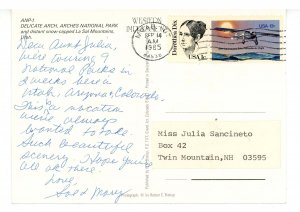 ANP-1
DELICATE ARCH, ARCHES NATIONAL PARK
and distant snow-capped La Sal Mountains,
Utah.
Dear Aunt Julia,
We're touring 9
National Parks in
2 weeks here in
Utah, Arizona, Colorado.
This is a vacation
we've always
wanted to take.
Such beautiful
scenery. Hope you
are ok there.
Love,
Sal & Mary
WESTERN
SEP 14
1985
Dorothea Dix
USA 1c
USA
Miss Julia Sancineto
Box 42
Twin Mountain, NH 03595